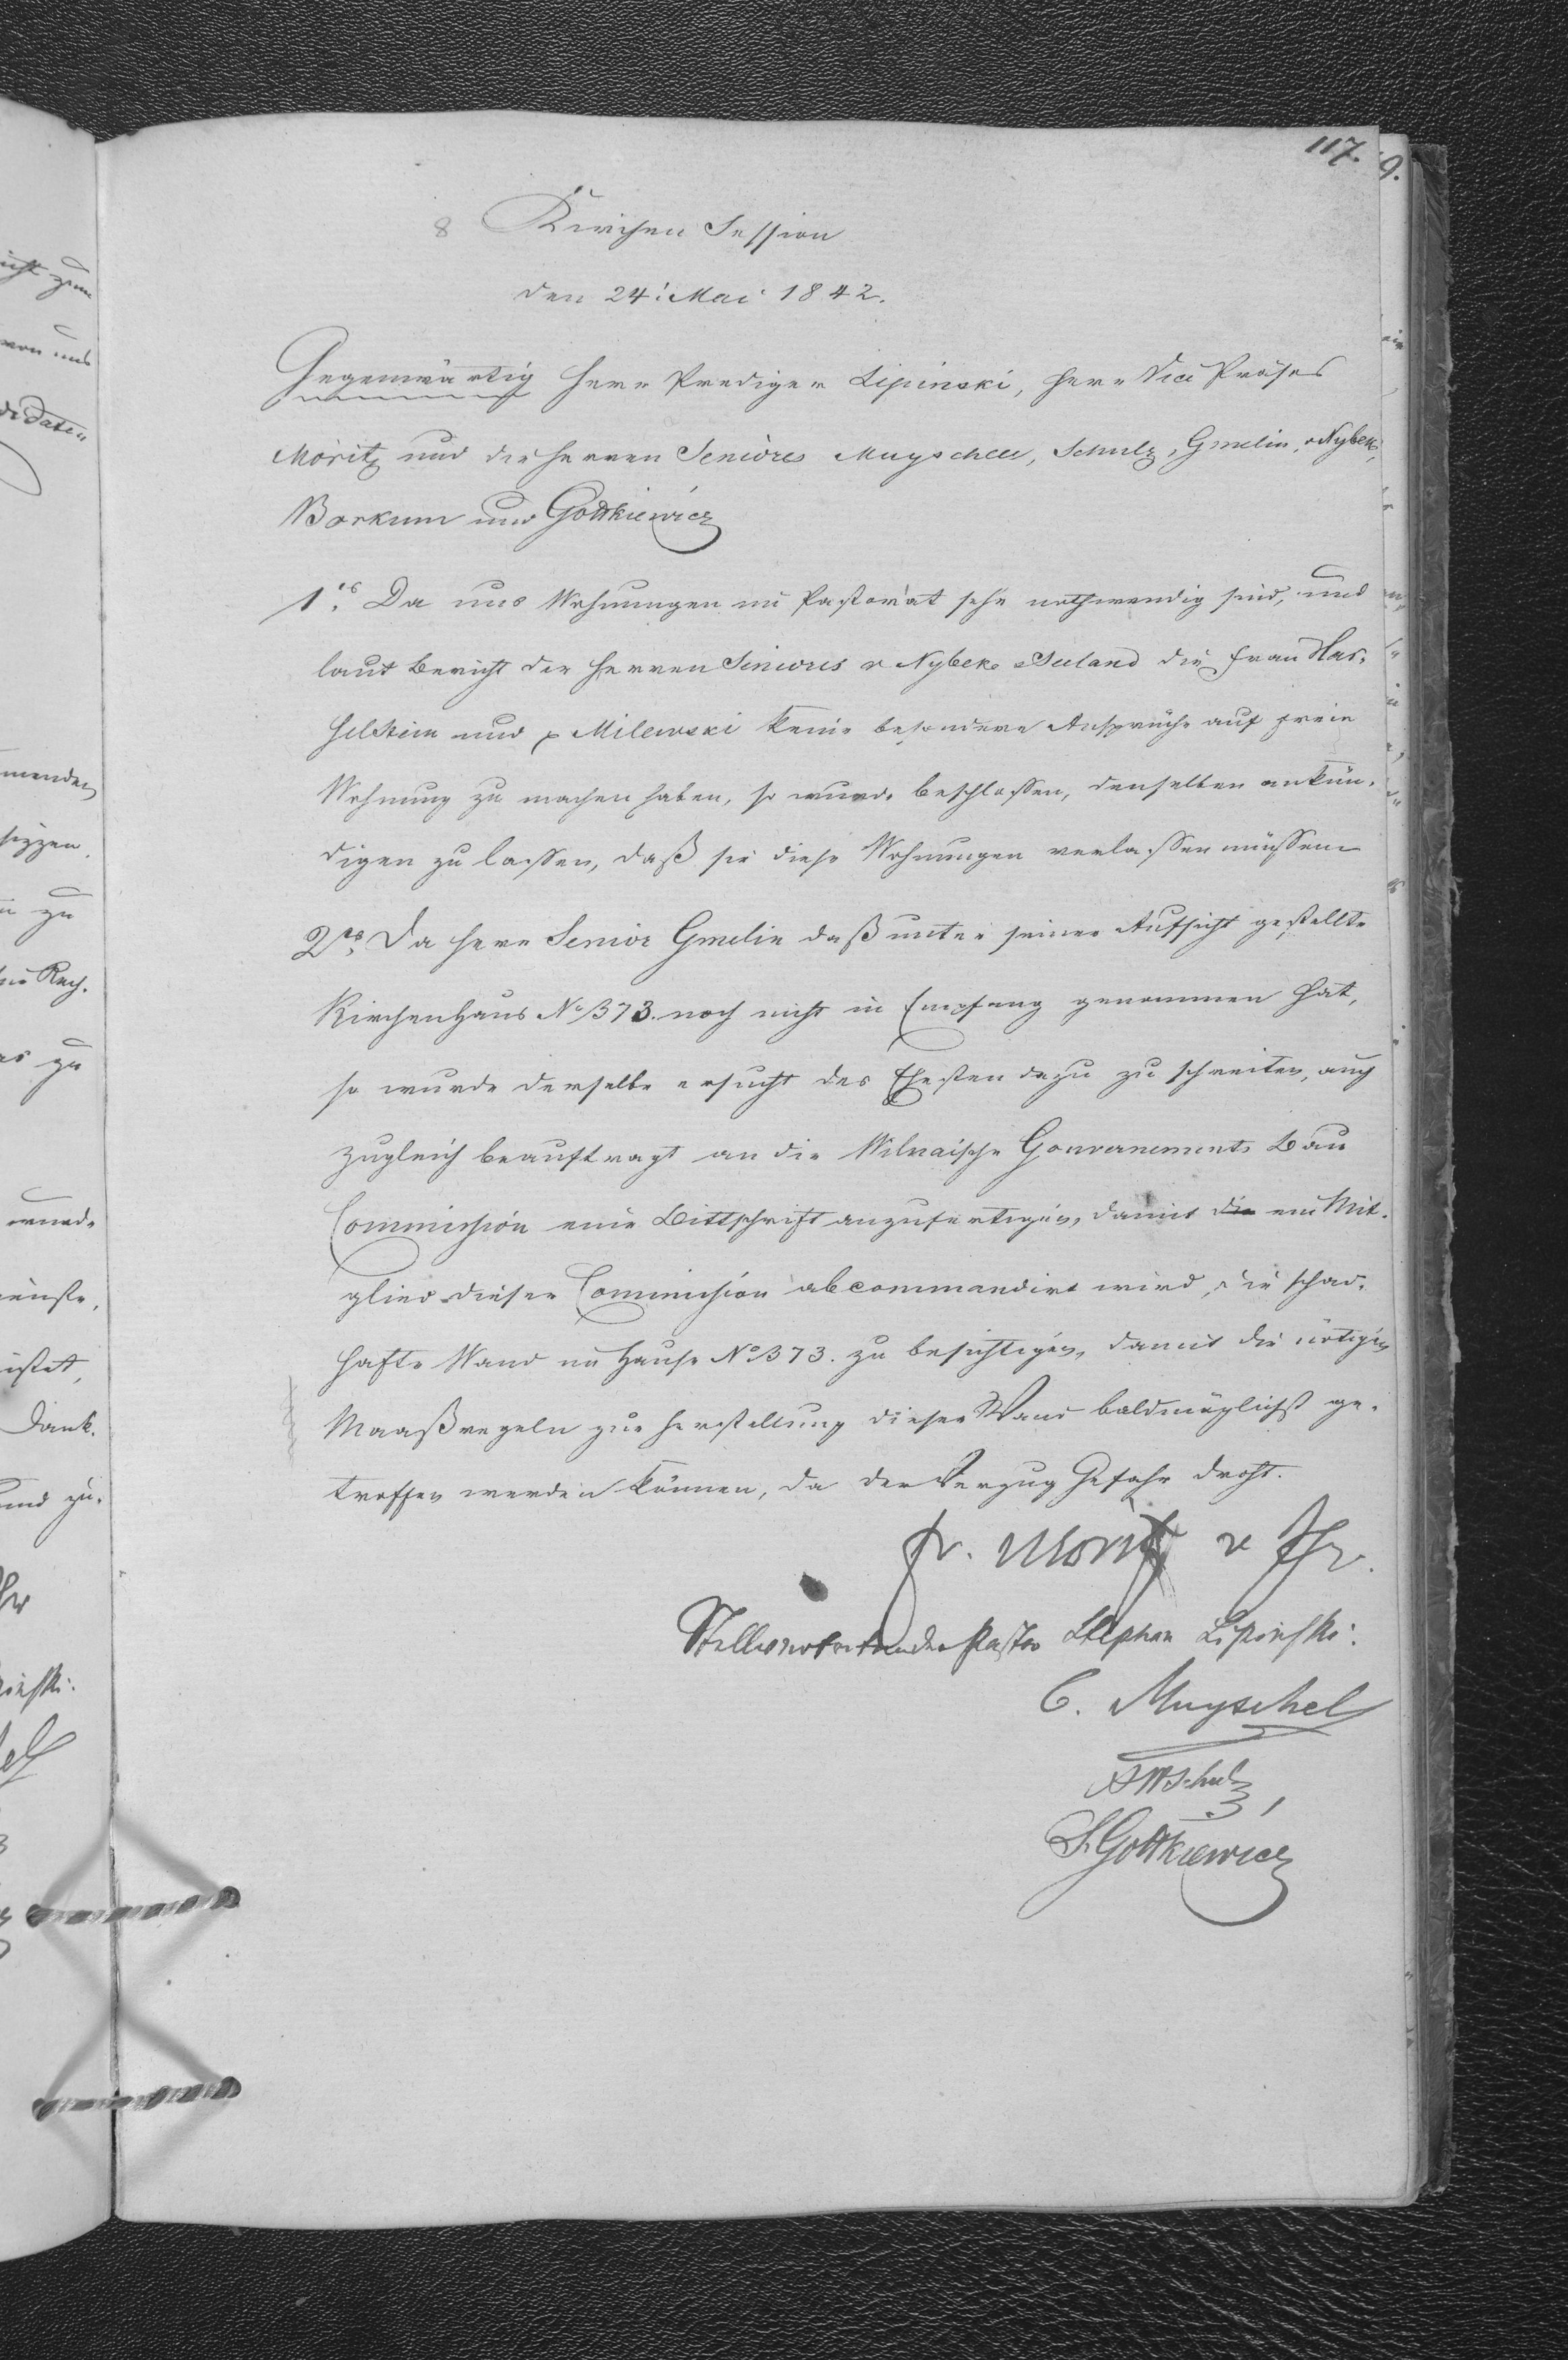 117.
8 Kirchen Session
den 24: Mai 1842.
Gegenwärtig Herr Prediger Lipinski, Herr Vice Präses
Moritz und die Herren Seniores Muyschel, Schulz, Gmelin, v Nybek,
Borkum und Gottkiewicz
1.es Da uns Wohnungen im Pastorat sehr nothwendig sind, und
laut Bericht der Herren Seniores v Nybek & Seeland die Frau Has-
helstein und p Milewski keine besondere Ansprüche auf freie
Wohnung zu machen haben, so wurde beschlossen, denselben ankün-
digen zu lassen, daß sie diese Wohnungen verlassen müssen
2.es Da Herr Senior Gmelin daß unter seiner Aufsicht gestellte
Kirchenhaus No 373. noch nicht in Empfang genommen hat,
so wurde derselbe ersucht des Ehesten dazu zu schreiten, auch
zugleich beauftragt an die Wilnaische Gouvernements Bau
Commission eine Bittschrift anzufertigen, damit die ein Mit-
glied dieser Commission abcommandirt wird, die schad-
hafte Wand im Hause No 373. zu besichtigen, damit die nötigen
Maaßregeln zur Herstellung dieser Wand baldmöglichst ge-
troffen werden können, da der Verzug Gefahr droht.
Fr. Moritz
Stellvertretender Pastor Stephan Lipinski.
C. Muyschel
Schulz
S. Gottkiewicz